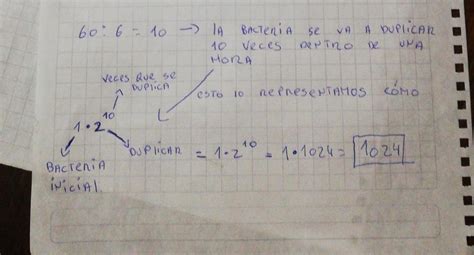 60 : 6 = 10 → LA BACTERIA SE VA A DUPLICAR
10 VECES DENTRO DE UNA
HORA
VECES QUE SE
DUPLICA
ESTO LO REPRESENTAMOS CÓMO
1 • 2^10
DUPLICAR = 1 • 2^10 = 1 • 1024 = 1024
BACTERIA
INICIAL.